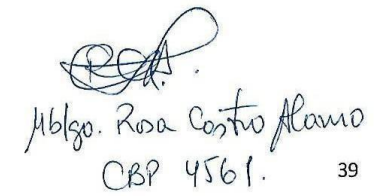 Mblgo. Rosa Castro Alamo
CBP 4561.
39